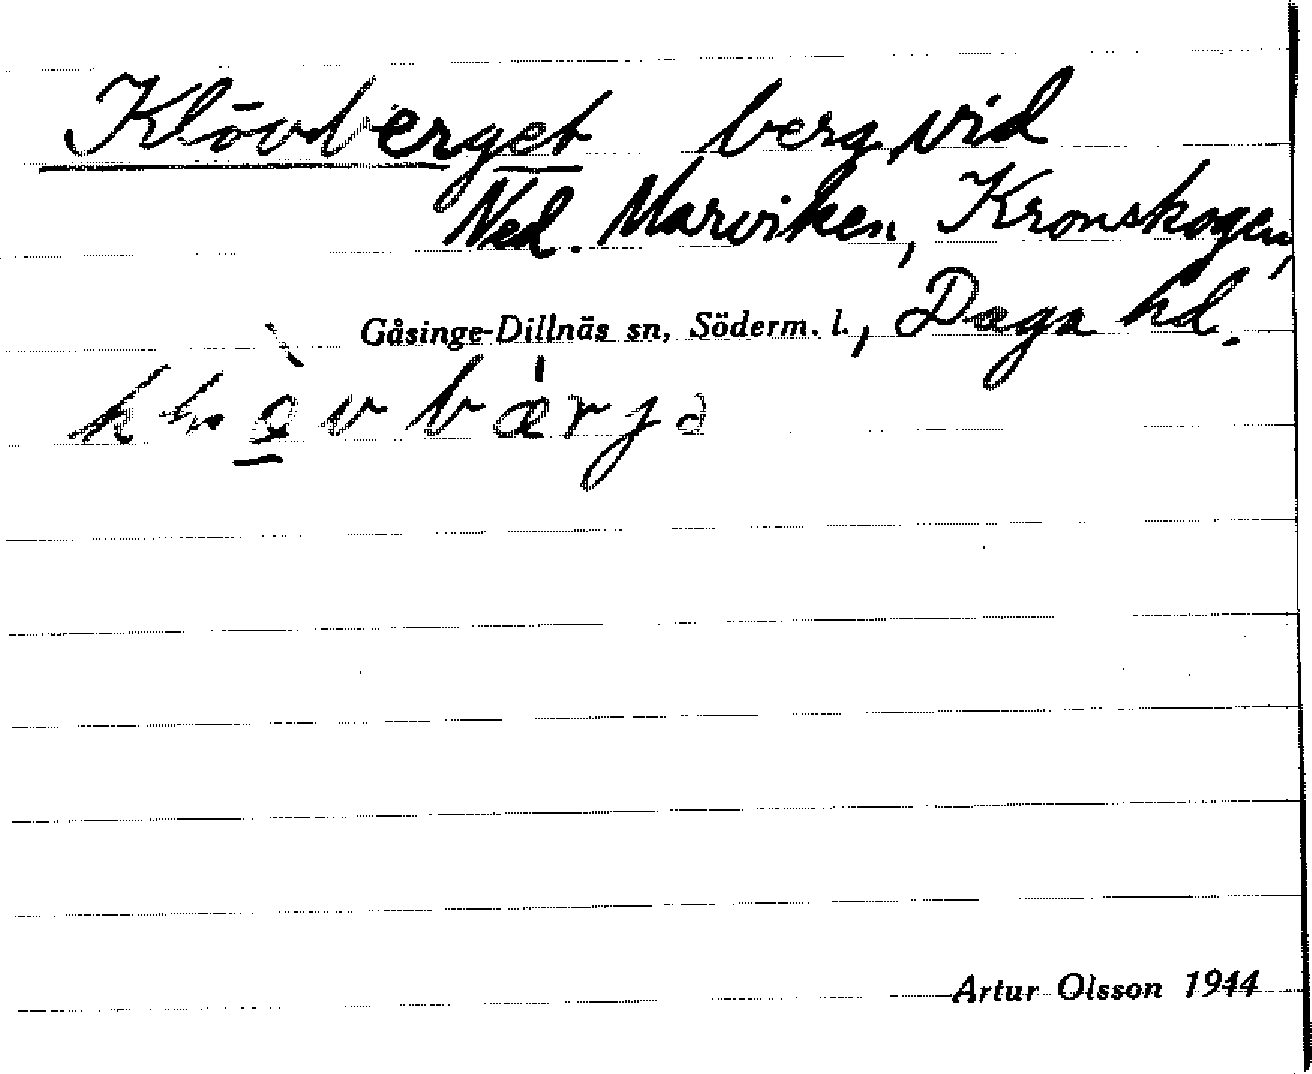 Klövberget berg vid
Ned. Marviken, Kronskogen,
Gåsinge-Dillnäs sn, Söderm. l., Daga hd.
Artur Olsson 1944